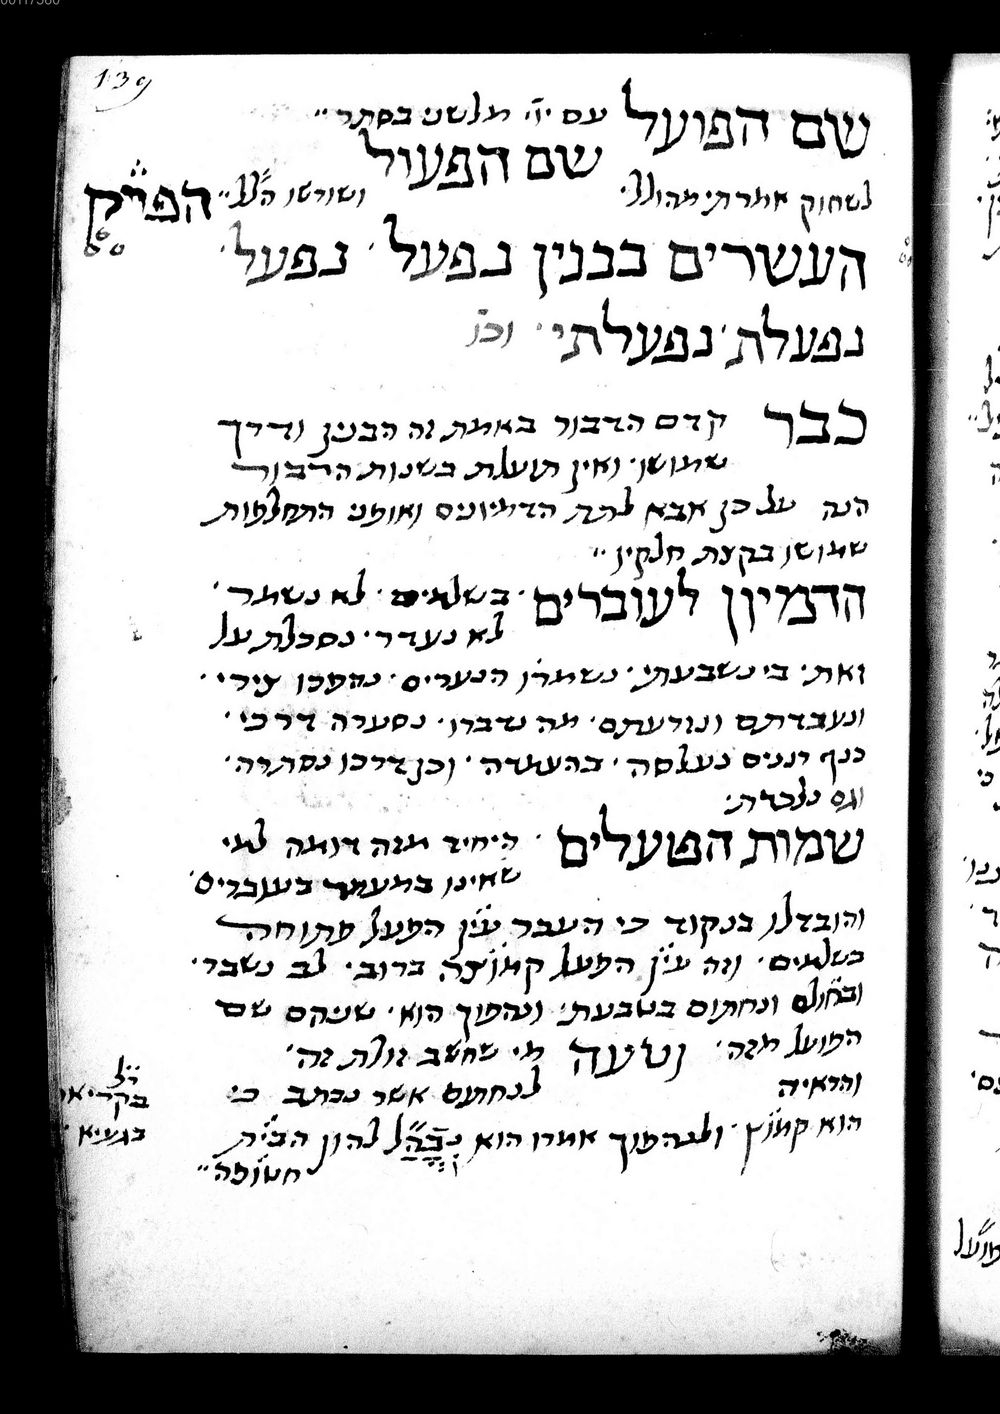 139
שם הפועל עם יו׳ מלשני בסתר״
לשחוק אמרתי מהולל׳ שם הפעול ושורשו הלל״ הפי״ק
העשרים בבנין נפעל׳ נפעל׳
נפעלת׳ נפעלתי׳ וכו׳
כבר קדם הדבור באמת זה הבנין ודרך
שמושו׳ ואין תועלת בשנות הדבור
הנה על כן אבא לתת הדמיונים ואופני התחלפות
שמושו בקצת חלקיו״
הדמיון לעוברים׳ בשלמים׳ לא נשמר׳
לא נעדר׳ נסכלת על
זאת׳ בי נשבעתי׳ נשמרו הנערים׳ נהפכו צירי׳
ונעבדתם ונזרעתם׳ מה נדברו׳ נסערה דרכי׳
כנף רננים נעלסה׳ בהעתרה׳ וכן דרכו נסתרה׳
וגם נלכדת׳
שמות הפועלים׳ היחיד מזה דומה למי
שאינו במעמד בעוברים׳
והובדלו בנקוד כי העבר עי״ן הפעל פתוחה
בשלמים׳ וזה עי״ן הפעל קמוצה ברוב׳ לב נשבר׳
ובחולם ונחתום בטבעת׳ ונהפוך הוא׳ שניהם שם
הפועל מזה׳ וטעה מי שחשב זולת זה׳
והראיה לנחתם אשר נכתב כי
הוא קמוץ׳ ולנהפוך אמרו הוא נבהל להון הבי״ת
חטופה״
ר״ל
בקריאת
בגעיא